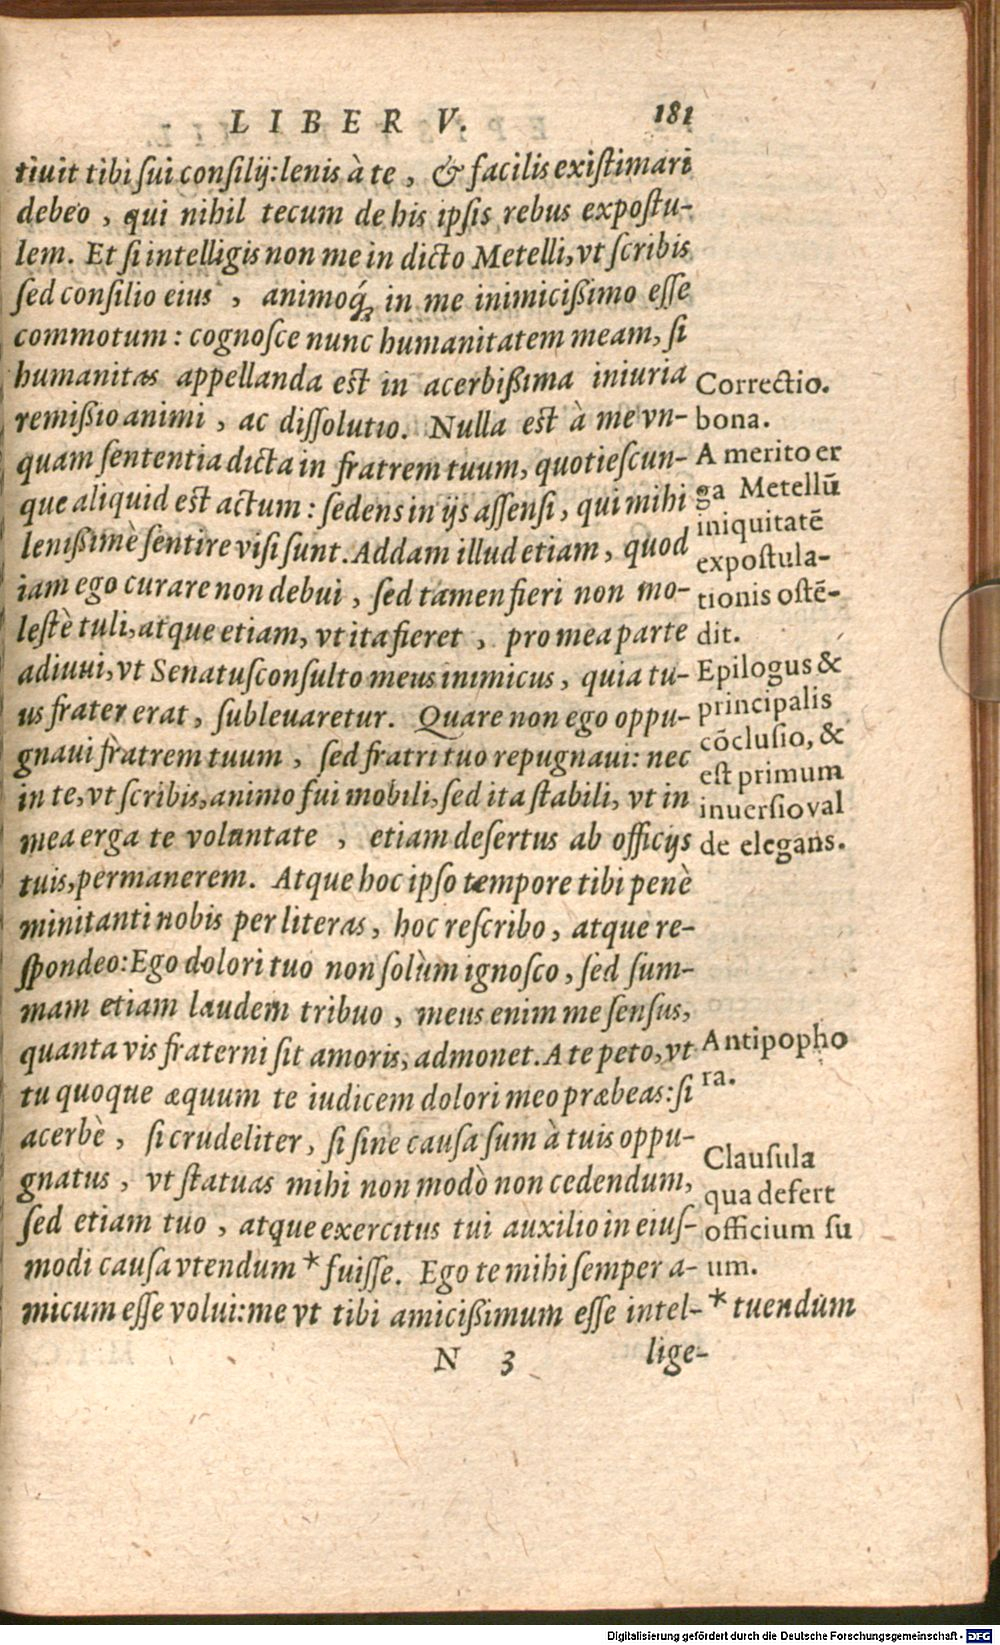 LIBER V. 181
tiuit tibi sui consilij: lenis à te, & facilis existimari
debeo, qui nihil tecum de his ipsis rebus expostu-
lem. Et si intelligis non me in dicto Metelli, vt scribis
sed consilio eius, animoq́; in me inimicißimo esse
commotum: cognosce nunc humanitatem meam, si
humanitas appellanda est in acerbißima iniuria
remißio animi, ac dissolutio. Nulla est à me vn-
quam sententia dicta in fratrem tuum, quotiescun-
que aliquid est actum: sedens in ijs assensi, qui mihi
lenißimè sentire visi sunt. Addam illud etiam, quod
iam ego curare non debui, sed tamen fieri non mo-
lestè tuli, atque etiam, vt ita fieret, pro mea parte
adiuui, vt Senatusconsulto meus inimicus, quia tu-
us frater erat, subleuaretur. Quare non ego oppu-
gnaui fratrem tuum, sed fratri tuo repugnaui: nec
in te, vt scribis, animo fui mobili, sed ita stabili, vt in
mea erga te voluntate, etiam desertus ab officijs
tuis, permanerem. Atque hoc ipso tempore tibi penè
minitanti nobis per literas, hoc rescribo, atque re-
spondeo: Ego dolori tuo non solùm ignosco, sed sum-
mam etiam laudem tribuo, meus enim me sensus,
quanta vis fraterni sit amoris, admonet. A te peto, vt
tu quoque æquum te iudicem dolori meo præbeas: si
acerbè, si crudeliter, si sine causa sum à tuis oppu-
gnatus, vt statuas mihi non modò non cedendum,
sed etiam tuo, atque exercitus tui auxilio in eius-
modi causa vtendum * fuisse. Ego te mihi semper a-
micum esse volui: me vt tibi amicißimum esse intel-
N 3 lige-
Correctio.
bona.
A merito er
ga Metellū
iniquitatē
expostula-
tionis ostē-
dit.
Epilogus &
principalis
cōclusio, &
est primum
inuersio val
de elegans.
Antipopho
ra.
Clausula
qua defert
officium su
um.
* tuendum
Digitalisierung gefördert durch die Deutsche Forschungsgemeinschaft - DFG